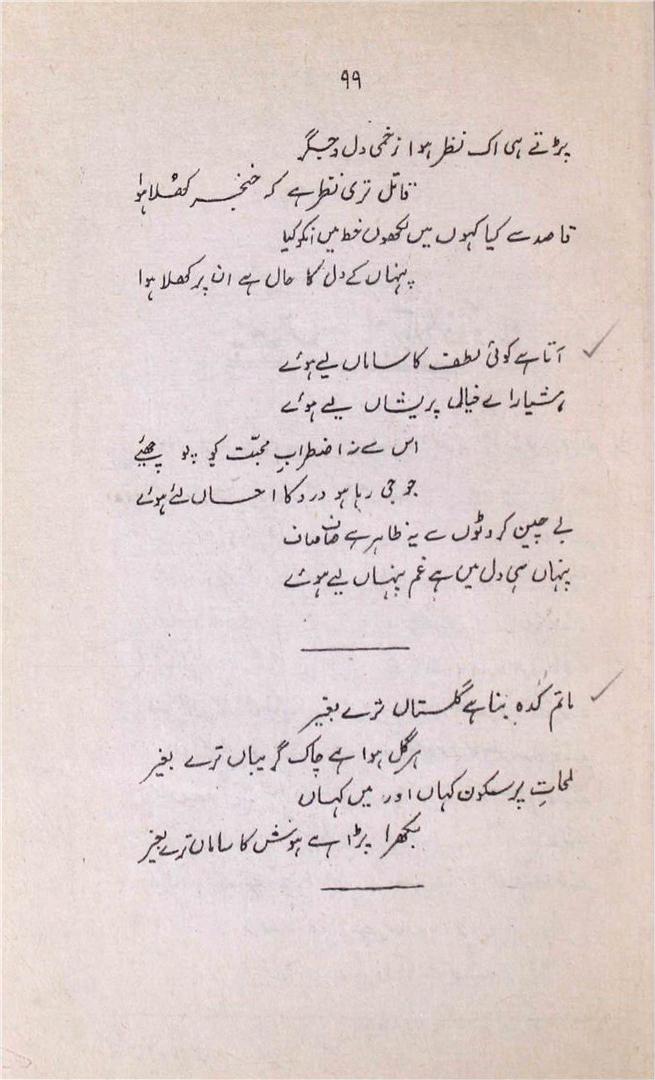 ۹۹
پڑتے ہی اک نظر ہوا زخمی دل و جگر
قاتل تری نظر ہے کہ خنجر کھُلا ہوا
قاصد سے کیا کہوں میں لکھوں خط میں انکو کیا
پنہاں کے دل کا حال ہے ان پر کھلا ہوا
آتا ہے کوئی لطف کا ساماں لیے ہوئے
ہشیار اے خیالِ پریشاں لیے ہوئے
اس سے نہ اضطرابِ محبّت کو پوچھیئے
جو جی رہا ہو درد کا احساں لئے ہوئے
بے چین کروٹوں سے یہ ظاہر ہے صاف صاف
پنہاں سہی دل میں ہے غمِ پنہاں لیے ہوئے
ماتم کدہ بنا ہے گلستاں ترے بغیر
ہر گل ہوا ہے چاک گریباں ترے بغیر
لمحاتِ پرسکون کہاں اور میں کہاں
بکھرا پڑا ہے ہوش کا ساماں ترے بغیر